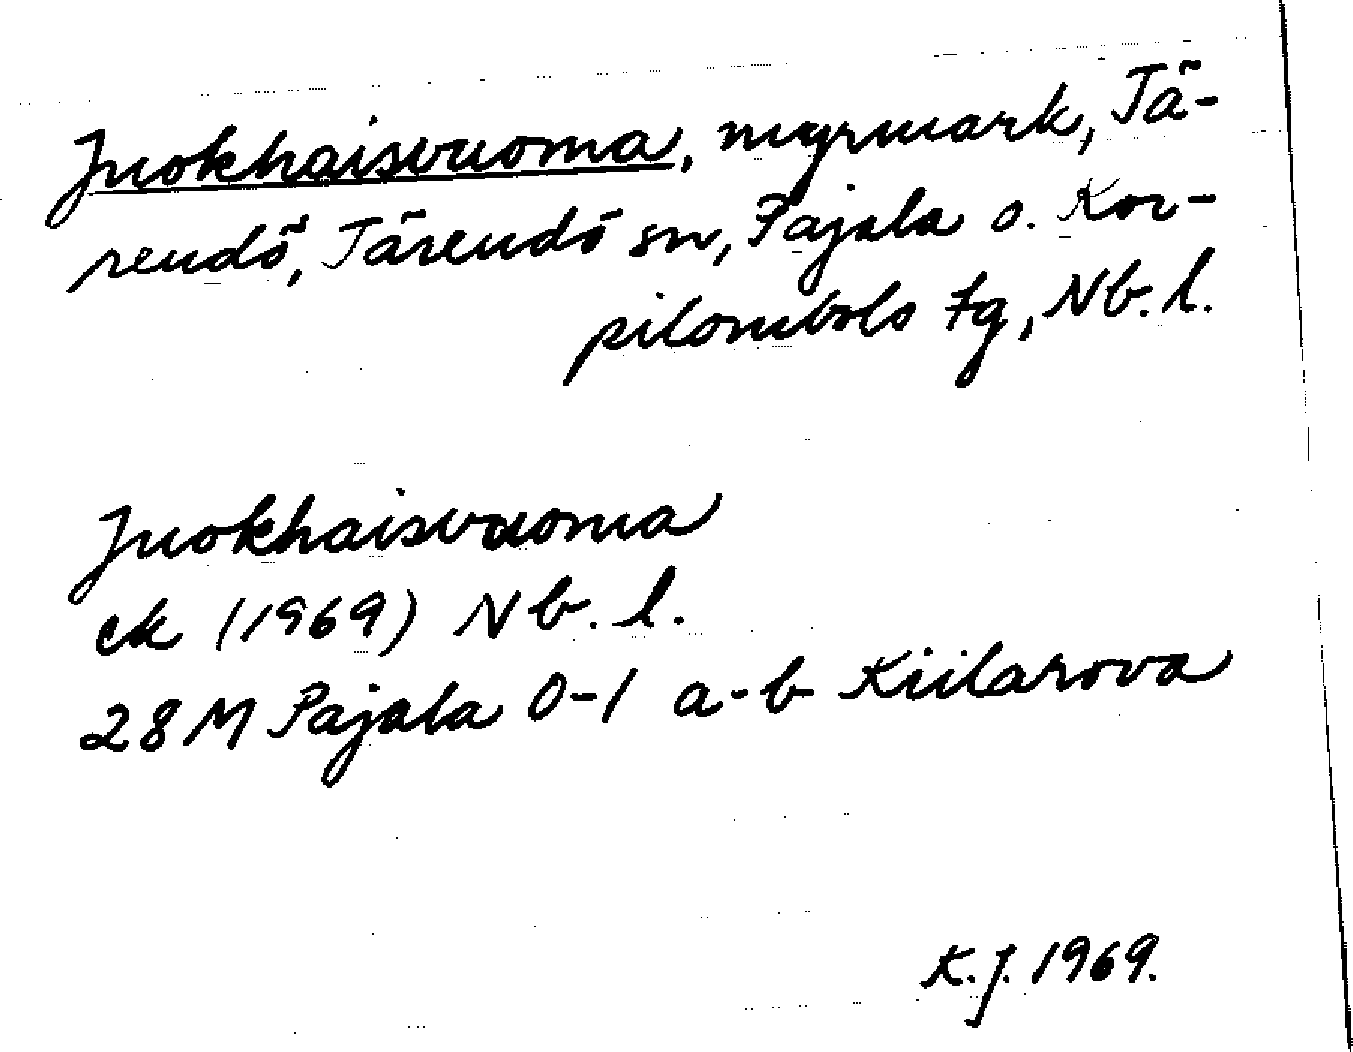 Juokhaisvuoma, myrmark, Tä-
rendö, Tärendö sn, Pajala o. Kor-
pilombolo tg, Nb. l.
Juokhaisvuoma
ek (1969) Nb. l.
28 M Pajala 0-1 a-b Kiilarova
K.J. 1969.